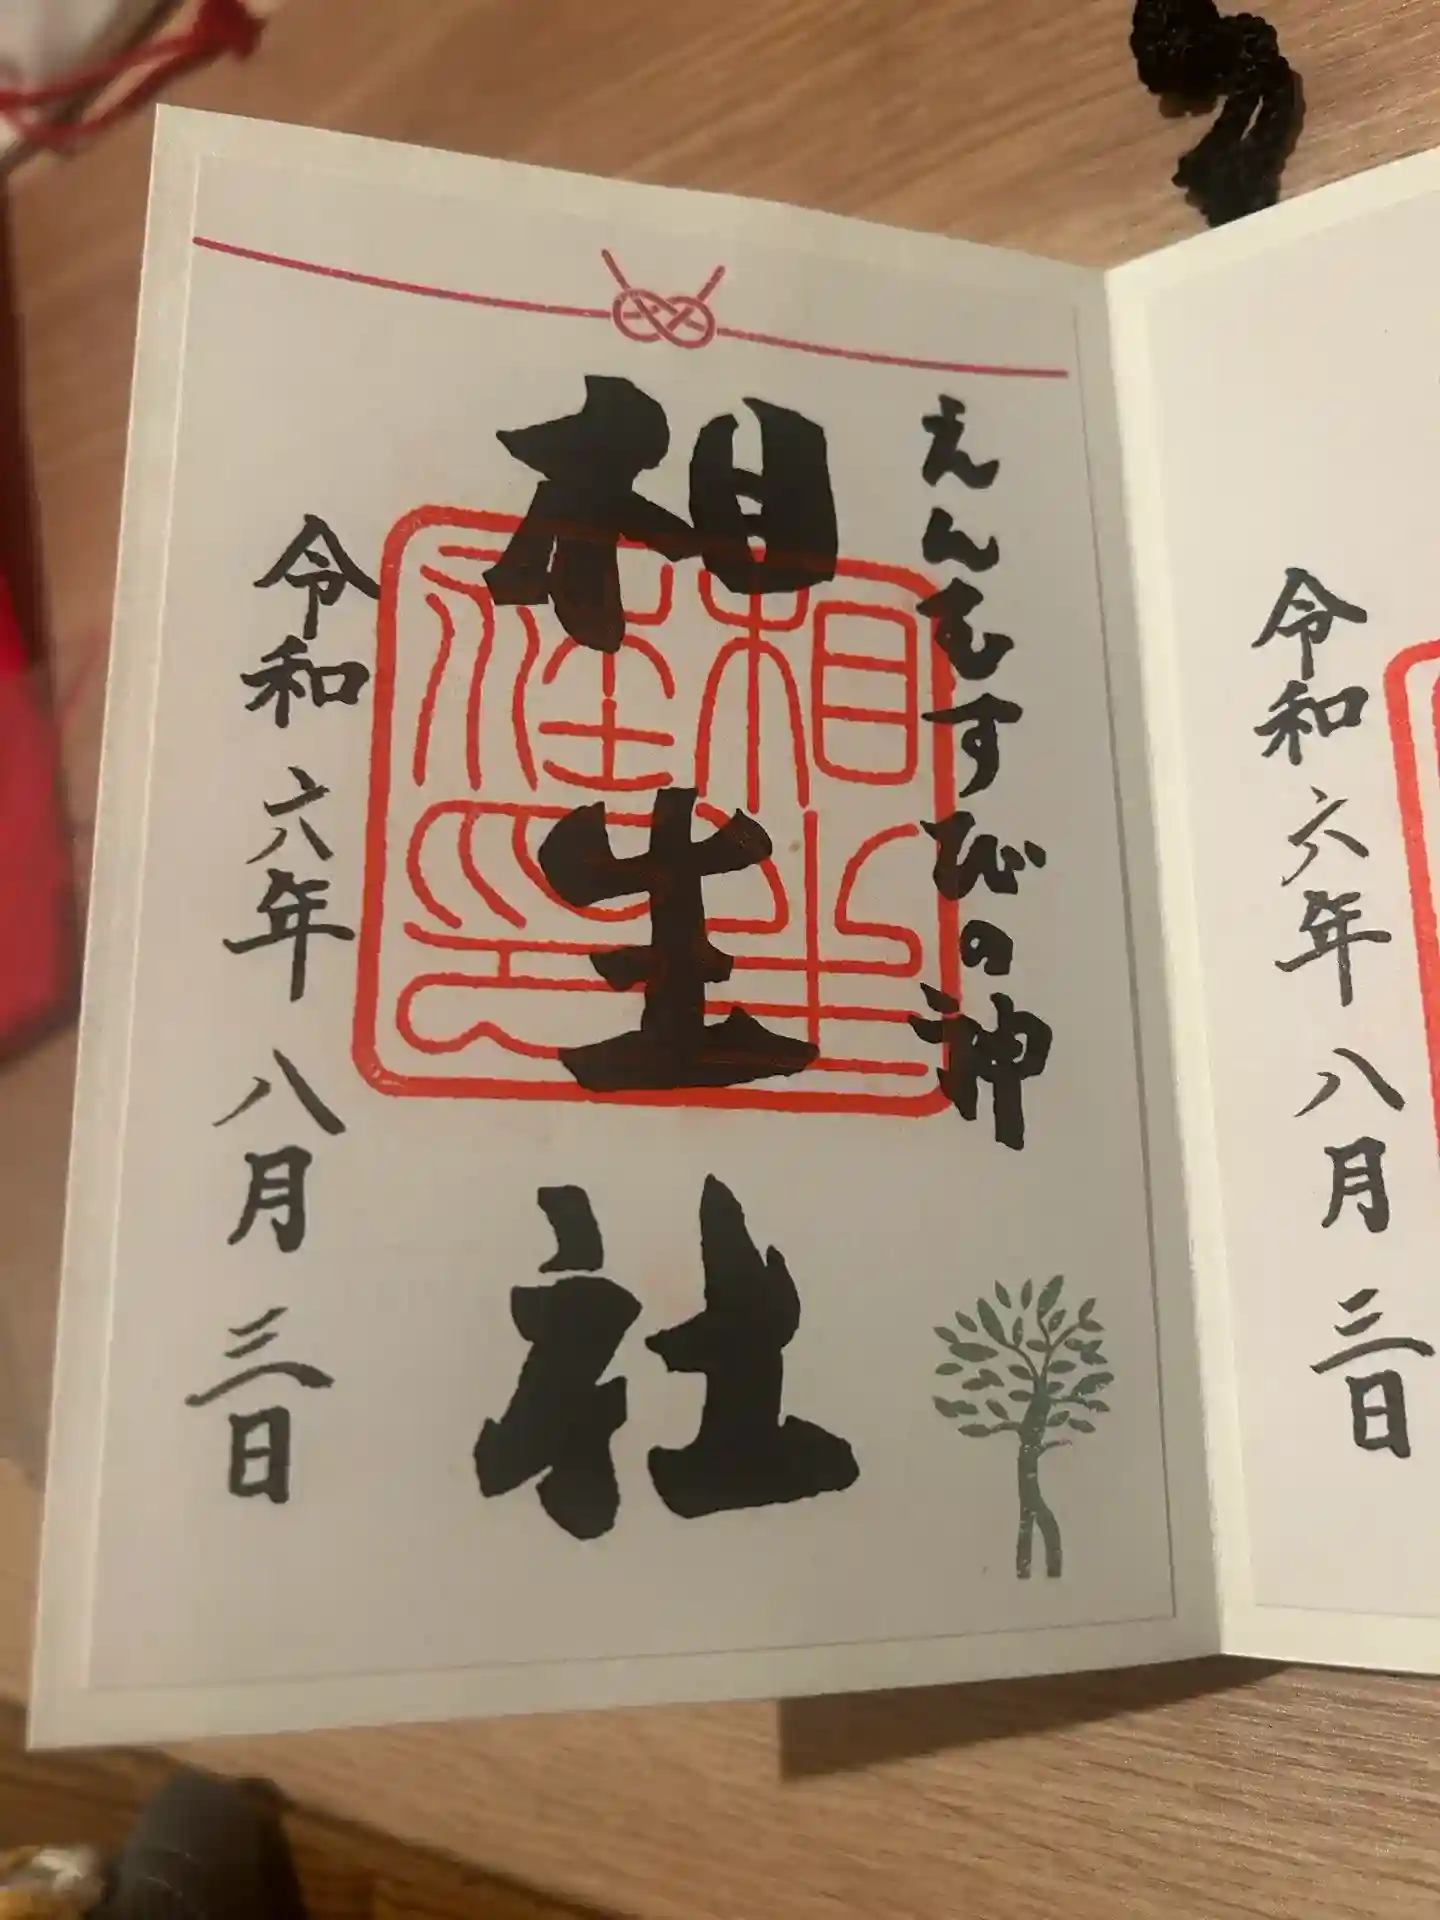 令和六年八月三日
えんむすびの神
相生社
相生社印
令和六年八月三日